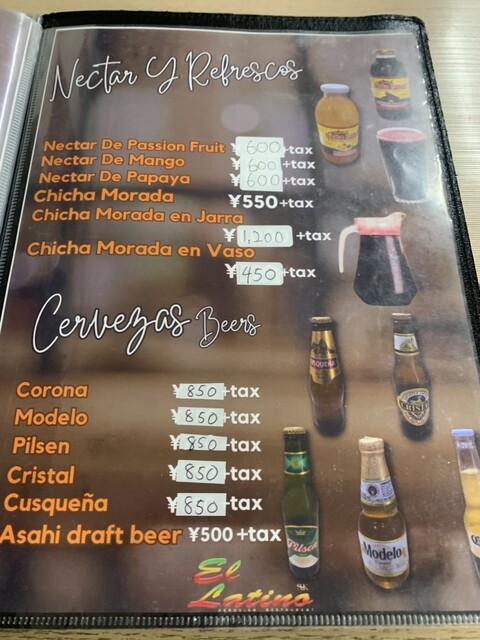 Nectar Y Refrescos
Nectar De Passion Fruit ¥600+tax
Nectar De Mango ¥600+tax
Nectar De Papaya ¥600+tax
Chicha Morada ¥550+tax
Chicha Morada en Jarra
¥1,200 +tax
Chicha Morada en Vaso
¥450+tax
Cervezas Beers
Corona ¥850+tax
Modelo ¥850+tax
Pilsen ¥850+tax
Cristal ¥850+tax
Cusqueña ¥850+tax
Asahi draft beer ¥500+tax
Pilsen
Modelo
El
Latino